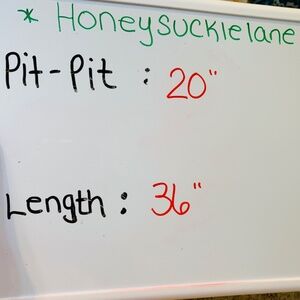 * Honeysucklelane
Pit-Pit : 20"
Length : 36"